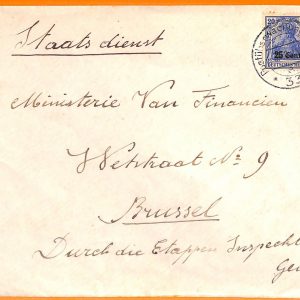 Staatsdienst
20
25 Cent
33
Ministerie Van Financien
Wetstraat No 9
Brussel
Durch die Etappen Inspect
Gen